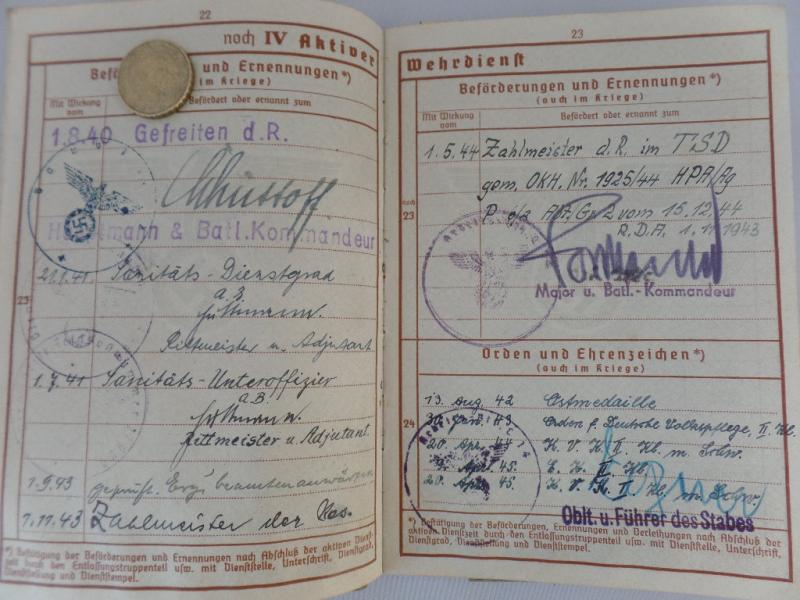 22
noch IV Aktiver
Beförderungen und Ernennungen*)
(auch im Kriege)
Mit Wirkung vom
Befördert oder ernannt zum
1.8.40 Gefreiten d.R.
Hauptmann & Batl.Kommandeur
21.1.41. Sanitäts-Dienstgrad
a. B.
Rittmeister u. Adjutant
23
1.7.41 Sanitäts-Unteroffizier
a.B.
Rittmeister u. Adjutant.
1.9.43 geprüft.
1.11.43 Zahlmeister der Res.
*) Bestätigung der Beförderungen und Ernennungen nach Abschluß der aktiven Dienst-
zeit durch den Entlassungstruppenteil usw. mit Dienststelle, Unterschrift, Dienstgrad,
Dienststellung und Dienststempel.
23
Wehrdienst
Beförderungen und Ernennungen*)
(auch im Kriege)
Mit Wirkung vom
Befördert oder ernannt zum
1.5.44 Zahlmeister d.R. im TSD
gem. OKH. Nr. 1925/44 HPA/Ag
vom 15.12.44
R.D.A. 1.11.1943
noch
23
Major u. Batl.-Kommandeur
Orden und Ehrenzeichen*)
(auch im Kriege)
13. Aug. 42 Ostmedaille
30. Jan. 43 Orden f. Deutsche Volkspflege, II. Kl.
24
20. Apr. 44 K. V. K. II. Kl. m. Schw.
Apr. 45. E. K. II. Kl.
20. Apr. 45. K. V. K. I. Kl. m. Schw.
Oblt. u. Führer des Stabes
*) Bestätigung der Beförderungen, Ernennungen und Verleihungen nach Abschluß der
aktiven Dienstzeit durch den Entlassungstruppenteil usw. mit Dienststelle, Unterschrift,
Dienstgrad, Dienststellung und Dienststempel.